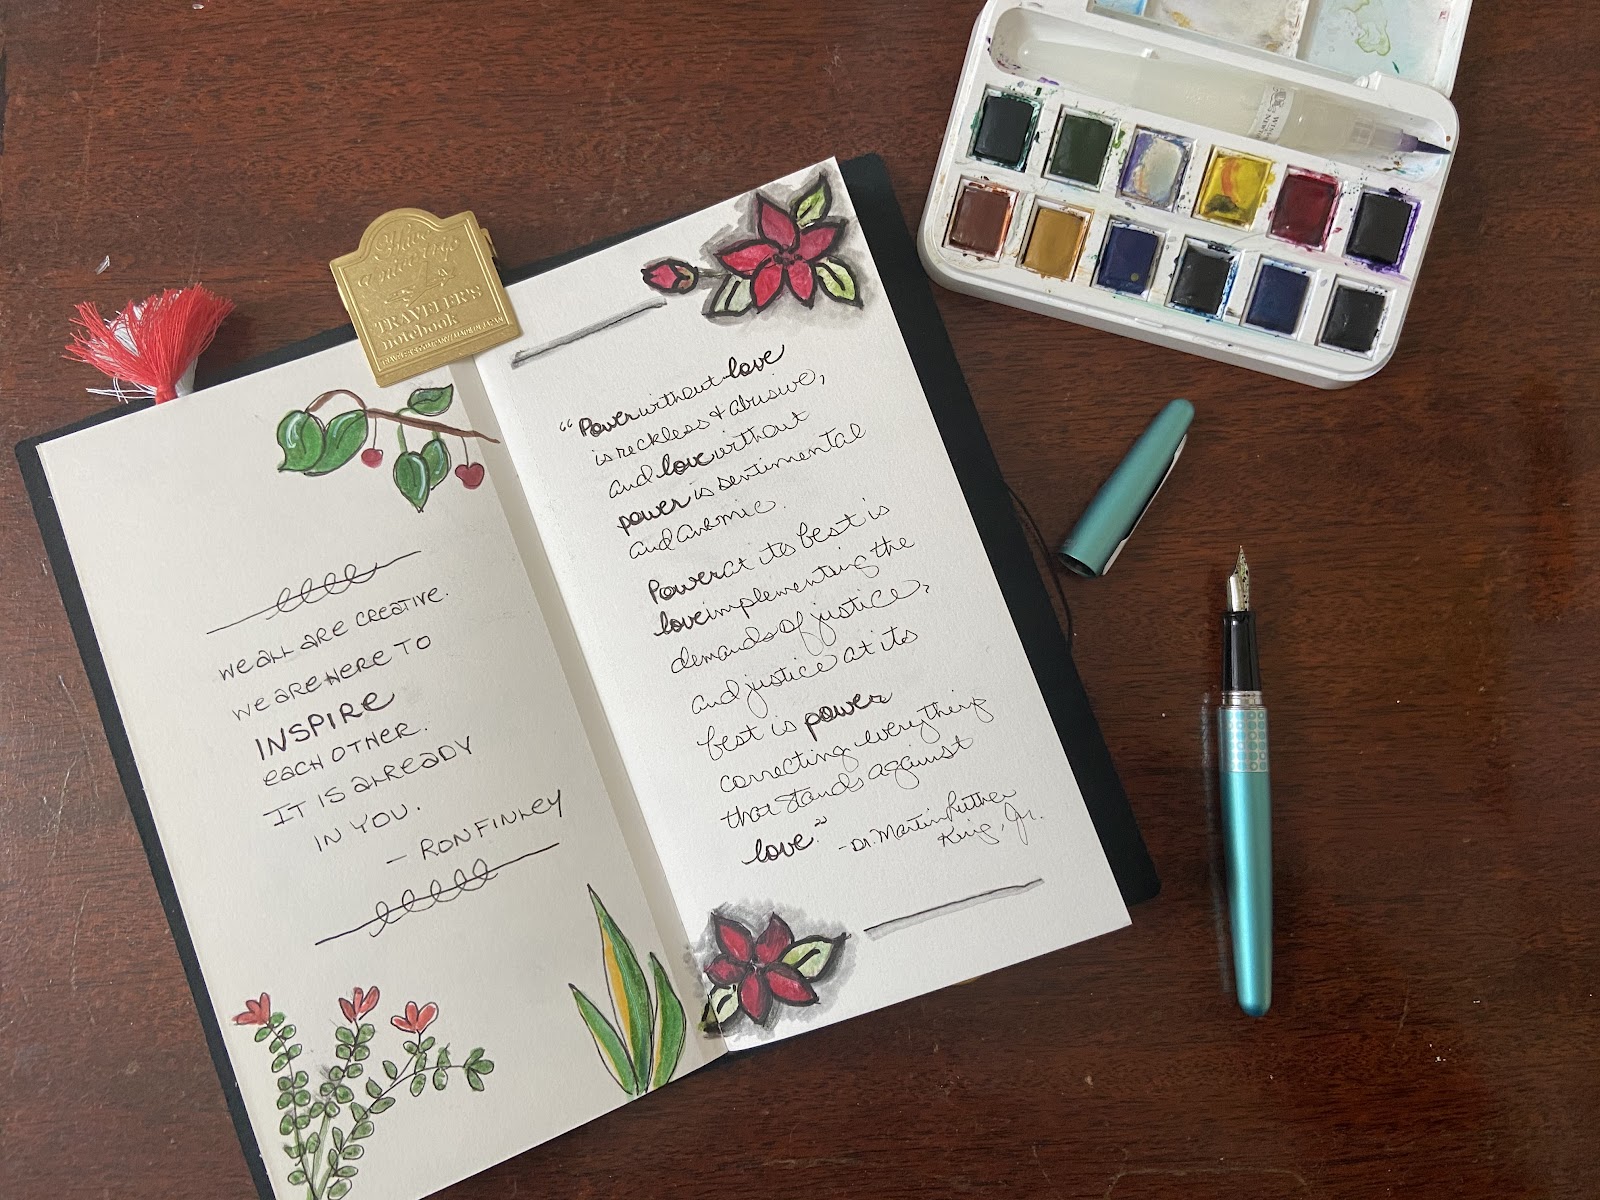 Have
a nice trip
TRAVELER'S
notebook
TRAVELER'S COMPANY MADE IN JAPAN
WE ALL ARE CREATIVE.
WE ARE HERE TO
INSPIRE
EACH OTHER.
IT IS ALREADY
IN YOU.
- RON FINLEY
"Power without love
is reckless & abusive,
and love without
power is sentimental
and anemic.
Power at its best is
love implementing the
demands of justice,
and justice at its
best is power
correcting everything
that stands against
love." - Dr. Martin Luther
King, Jr.